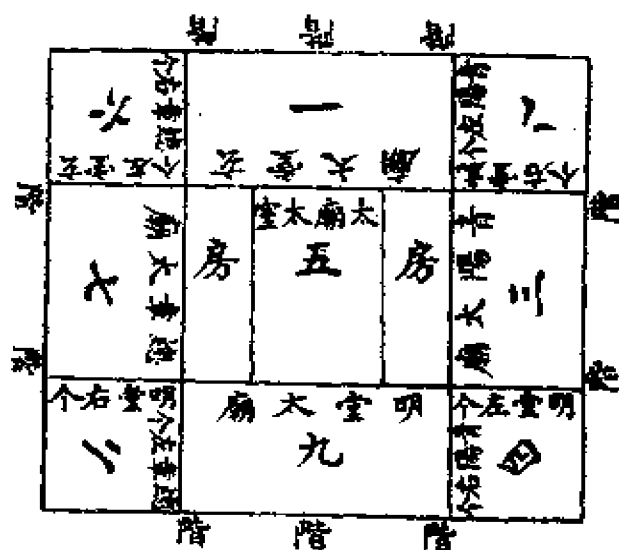 階 階 階
六
總章右个
玄堂左个
一
玄堂太廟
八
青陽左个
玄堂右个
階
階
七
總章太廟
房
太廟太室
五
房
青陽太廟
三
階
階
明堂右个
二
總章左个
明堂太廟
九
明堂左个
青陽右个
四
階 階 階